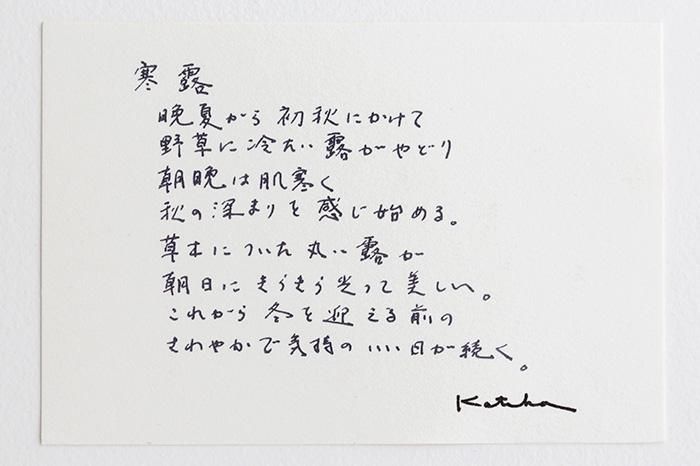 寒露
晩夏から初秋にかけて
野草に冷たい露がやどり
朝晩は肌寒く
秋の深まりを感じ始める。
草木についた丸い露が
朝日にきらきら光って美しい。
これから冬を迎える前の
さわやかで気持のいい日が続く。